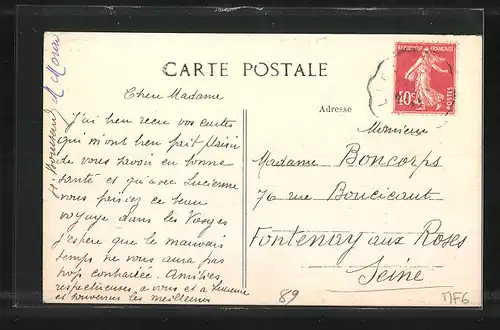 CARTE POSTALE
Chere Madame
Adresse
REPUBLIQUE FRANÇAISE
10c
POSTES
J'ai bien recu vos cartes
qui m'ont bien fait plaisir
de vous savoir en bonne
santé et qu'avec Lucienne
vous faisiez ce beau
voyage dans les Vosges
j'espere que le mauvais
temps ne vous aura pas
trop contrariée. Amitiées
respectueuses, a vous et a Lucienne
et souvenirs les meilleurs
Monsieur
Madame Boncorps
76 rue Boucicaut
Fontenay aux Roses
Seine
89